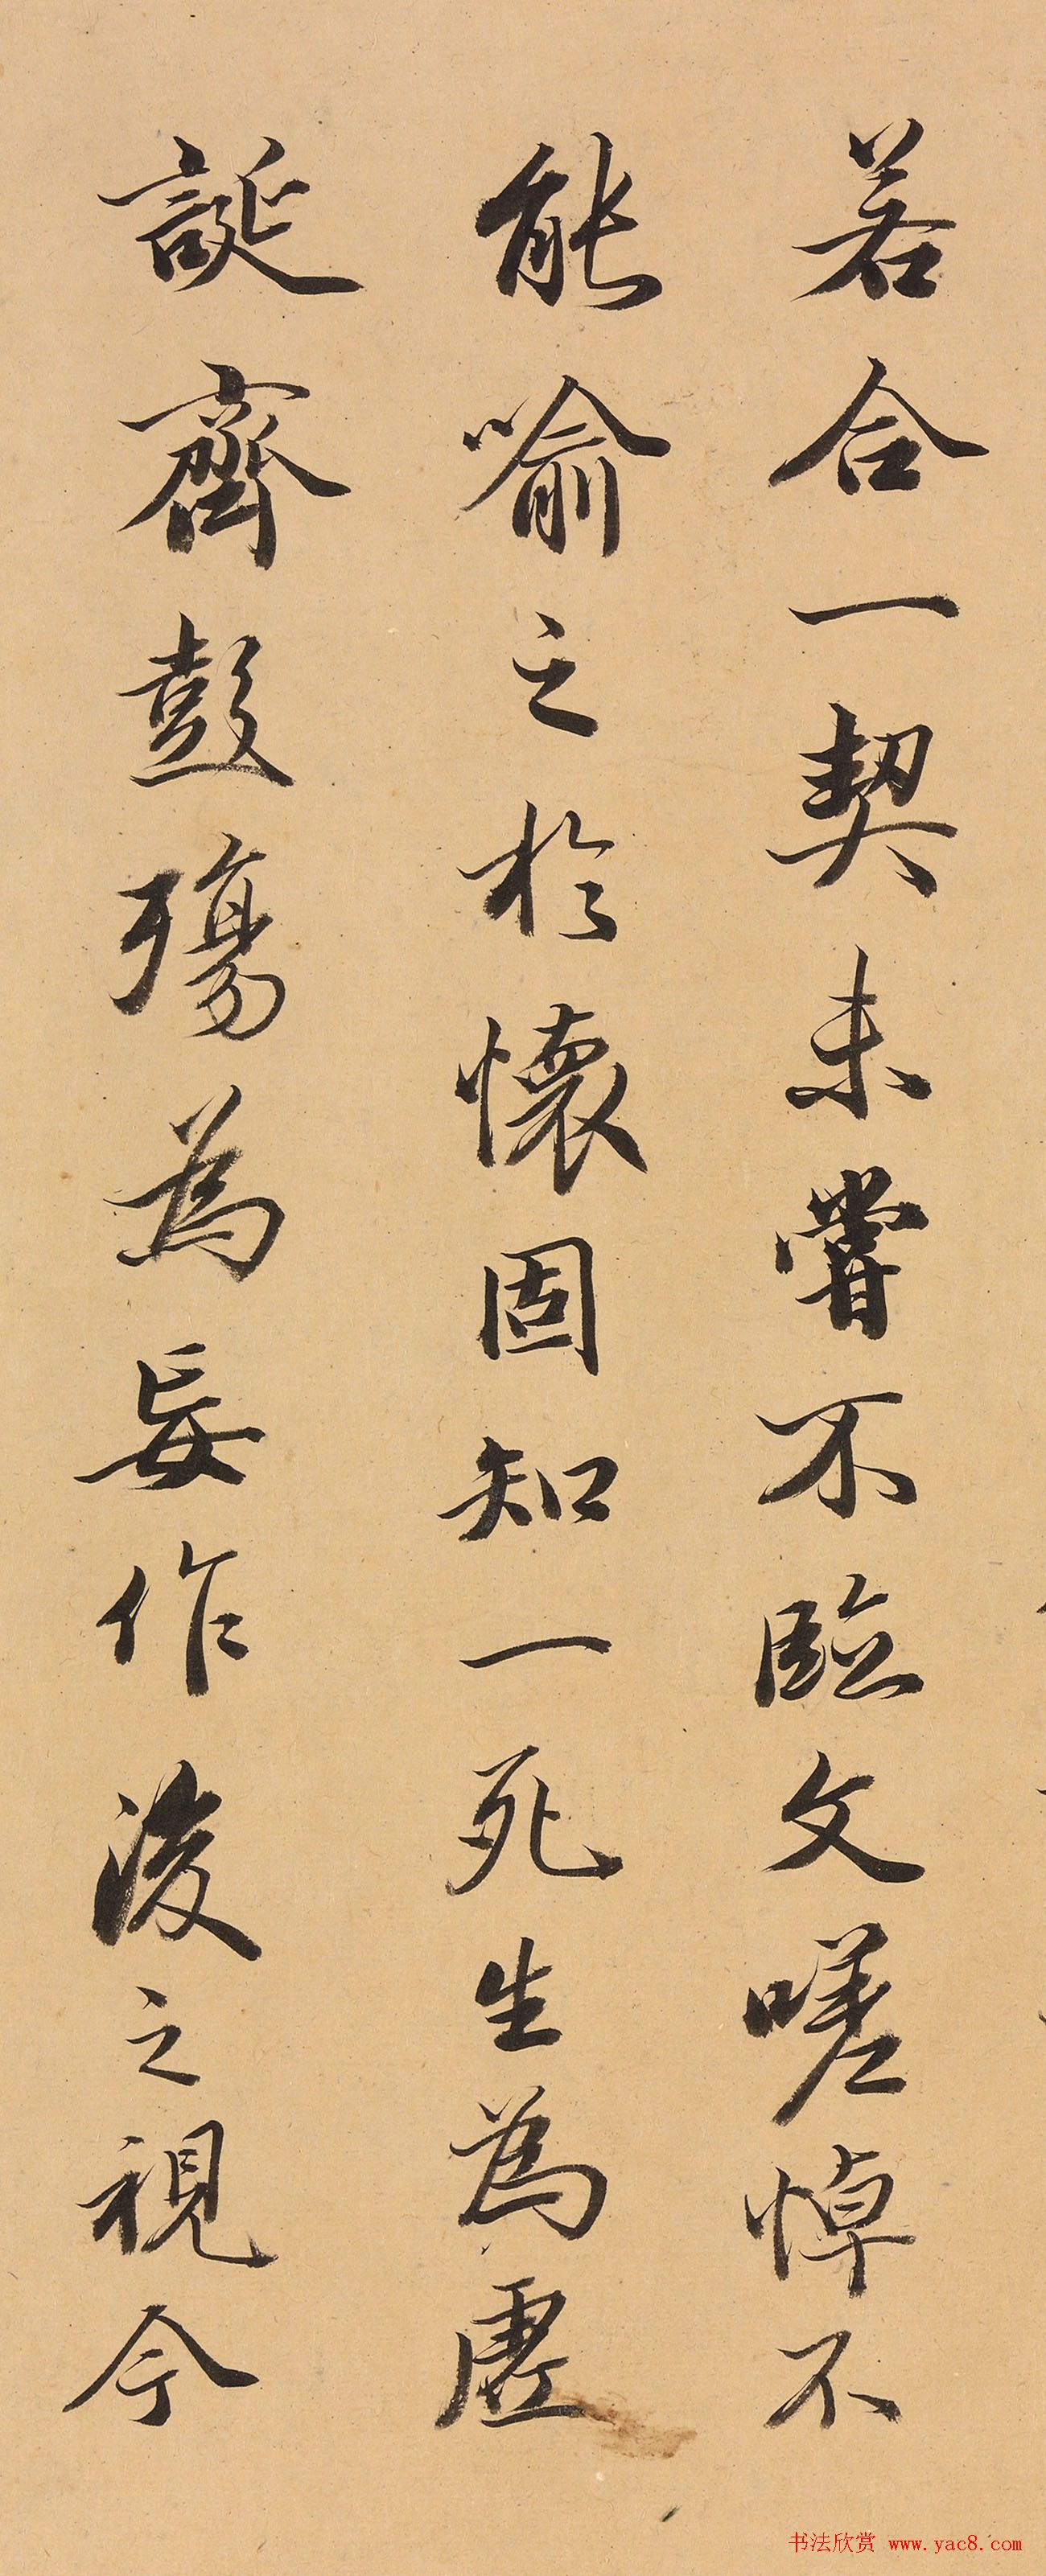 若合一契未嘗不臨文嗟悼不
能喻之於懷固知一死生為虛
誕齊彭殤為妄作後之視今
书法欣赏 www.yac8.com